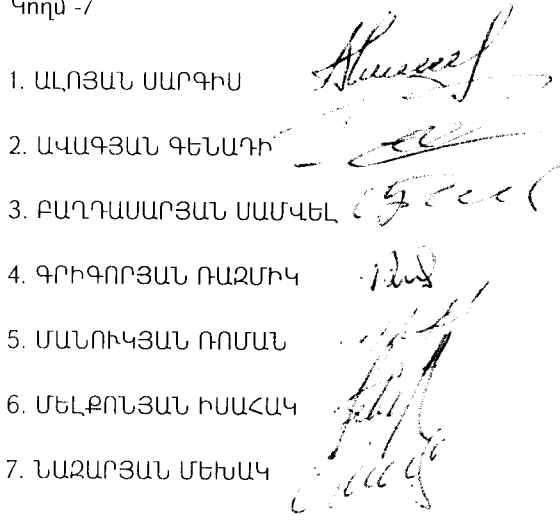 Կողմ -7
1. ԱԼՈՅԱՆ ՍԱՐԳԻՍ
2. ԱՎԱԳՅԱՆ ԳԵՆԱԴԻ
3. ԲԱՂԴԱՍԱՐՅԱՆ ՍԱՄՎԵԼ
4. ԳՐԻԳՈՐՅԱՆ ՌԱԶՄԻԿ
5. ՄԱՆՈՒԿՅԱՆ ՌՈՄԱՆ
6. ՄԵԼՔՈՆՅԱՆ ԻՍԱՀԱԿ
7. ՆԱԶԱՐՅԱՆ ՄԵԽԱԿ